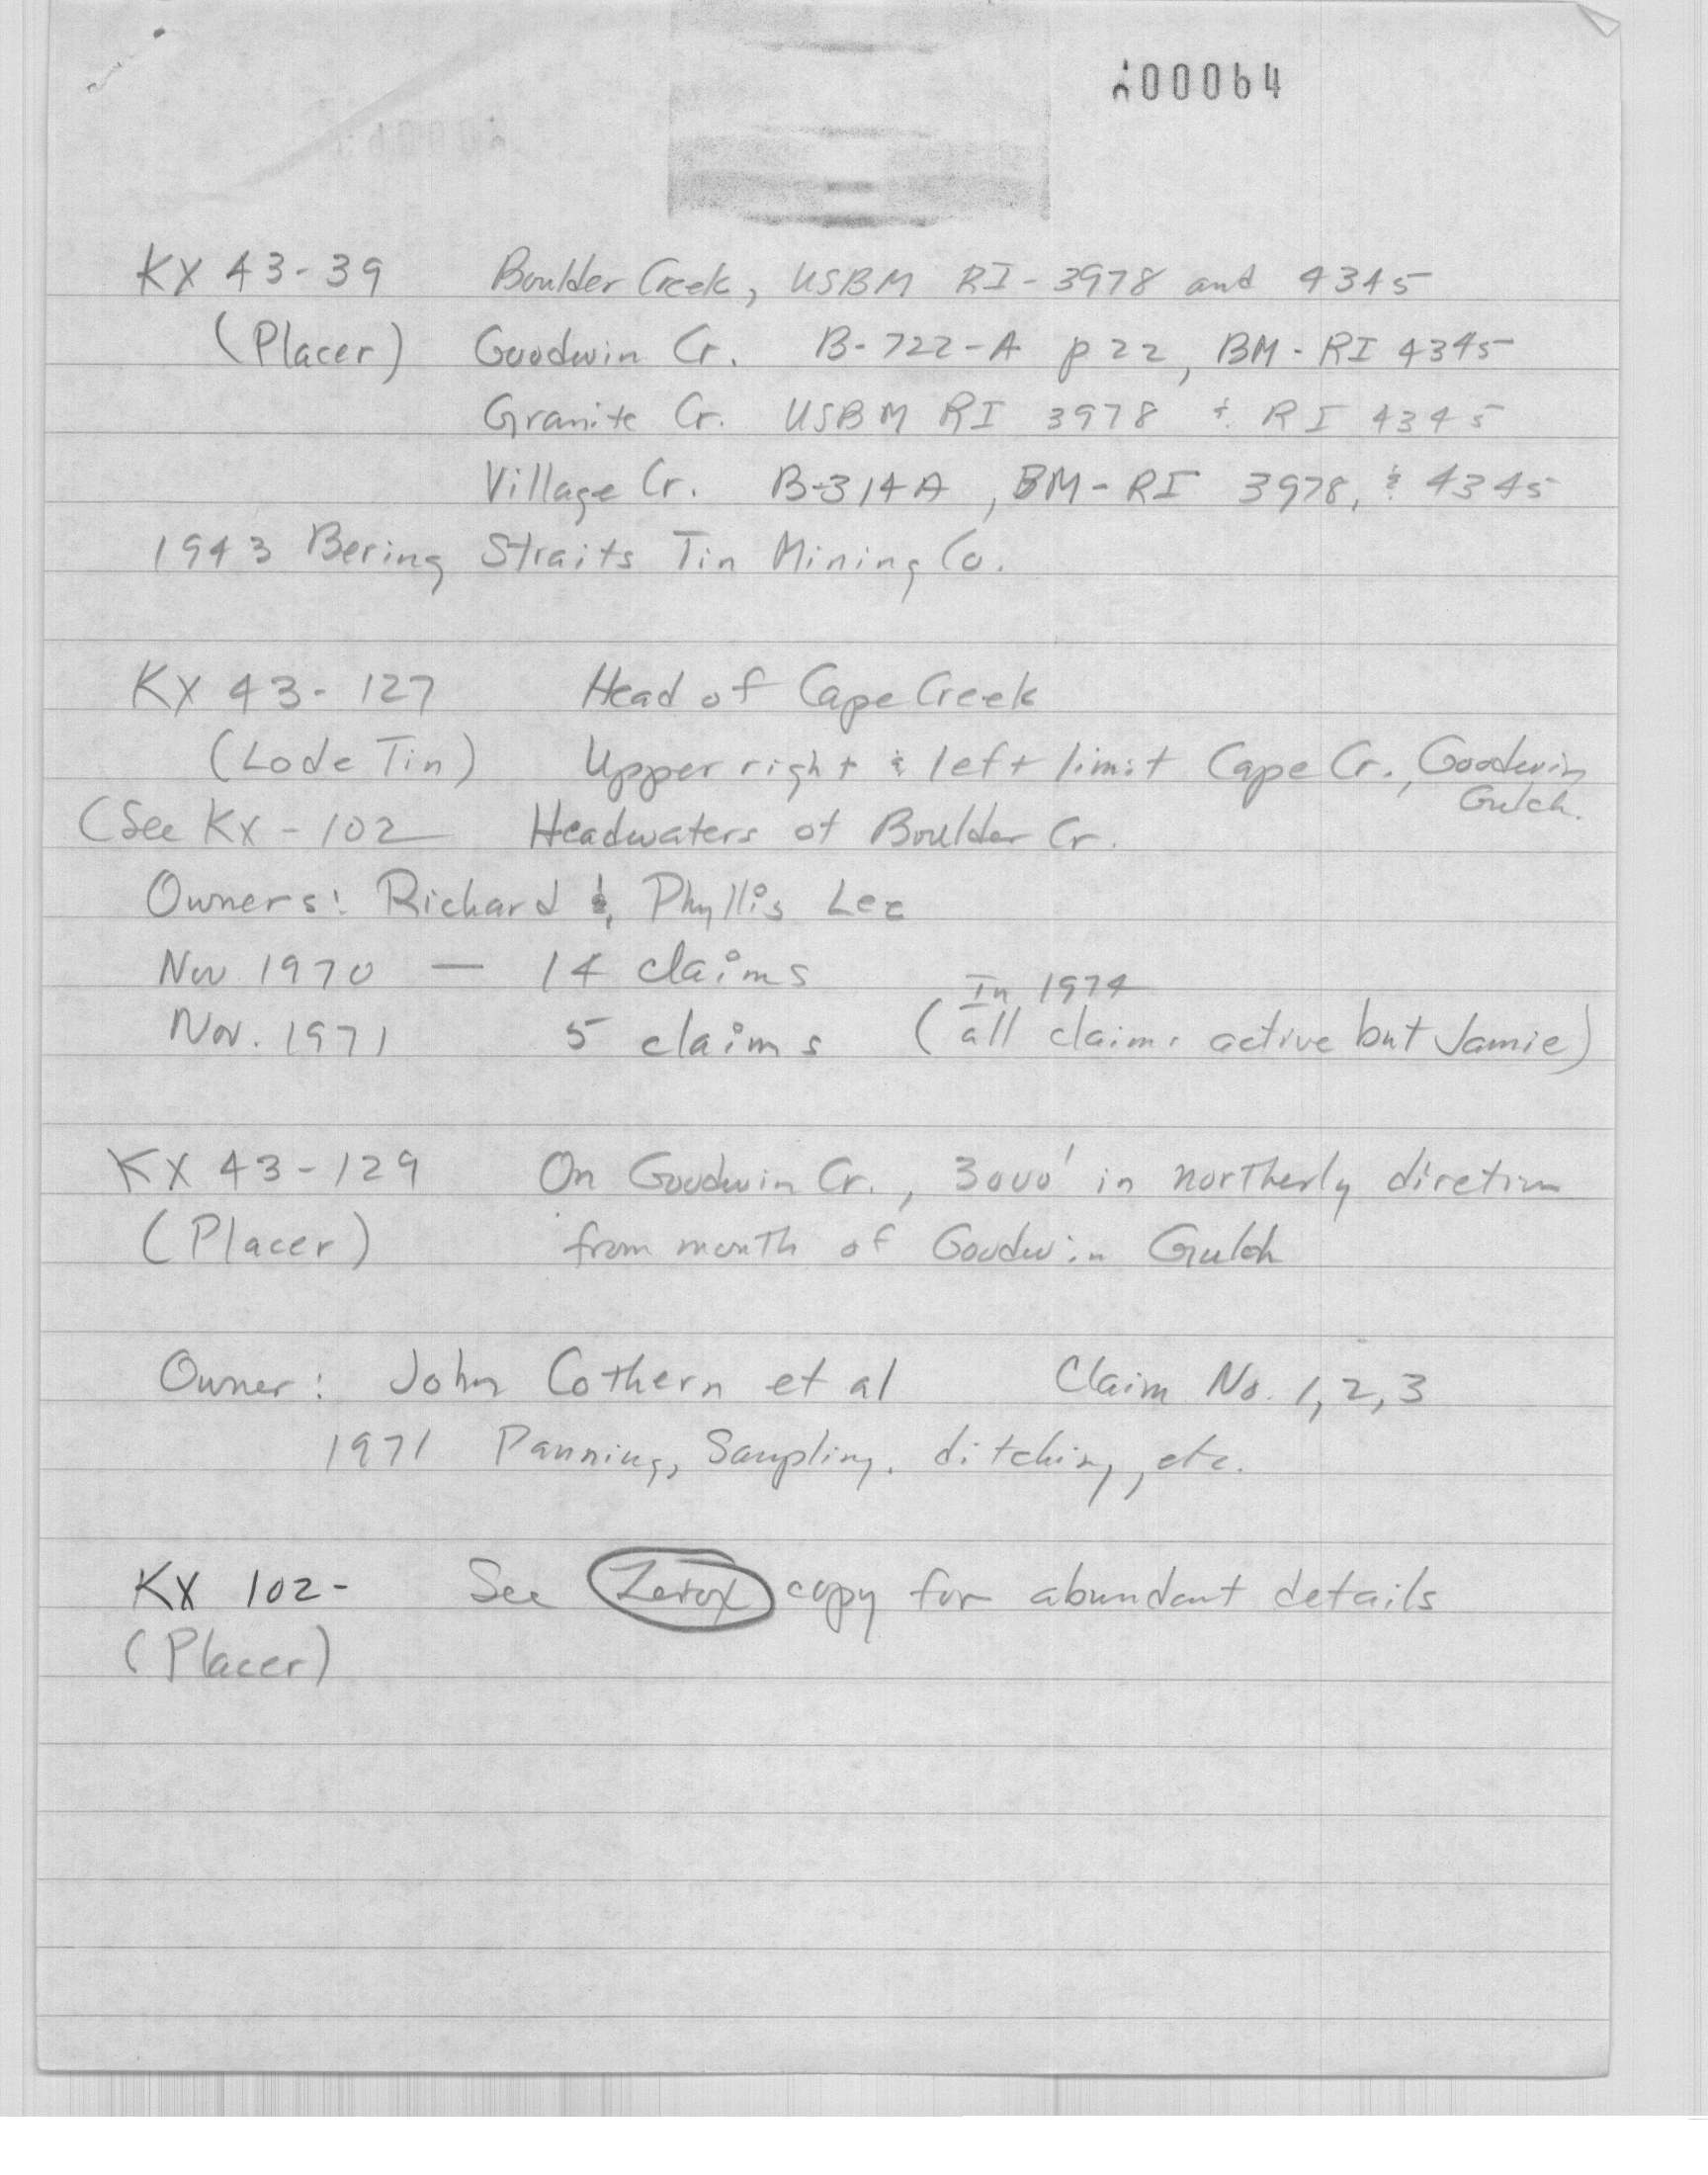 00064
KX 43-39 Boulder Creek, USBM RI-3978 and 4345
(Placer) Goodwin Cr. B-722-A p 22, BM-RI 4345
Granite Cr. USBM RI 3978 & RI 4345
Village Cr. B-314A, BM-RI 3978, & 4345
1943 Bering Straits Tin Mining Co.
KX 43-127 Head of Cape Creek
(Lode Tin) Upper right & left limit Cape Cr., Goodwin
Gulch.
(See KX-102 Headwaters of Boulder Cr.
Owners: Richard & Phyllis Lee
Nov 1970 — 14 claims
In 1974
Nov. 1971 5 claims (all claims active but Jamie)
KX 43-129 On Goodwin Cr., 3000' in northerly diretion
(Placer) from mouth of Goodwin Gulch
Owner: John Cothern et al Claim No. 1, 2, 3
1971 Panning, Sampling, ditching, etc.
KX 102- See Zerox copy for abundant details
(Placer)